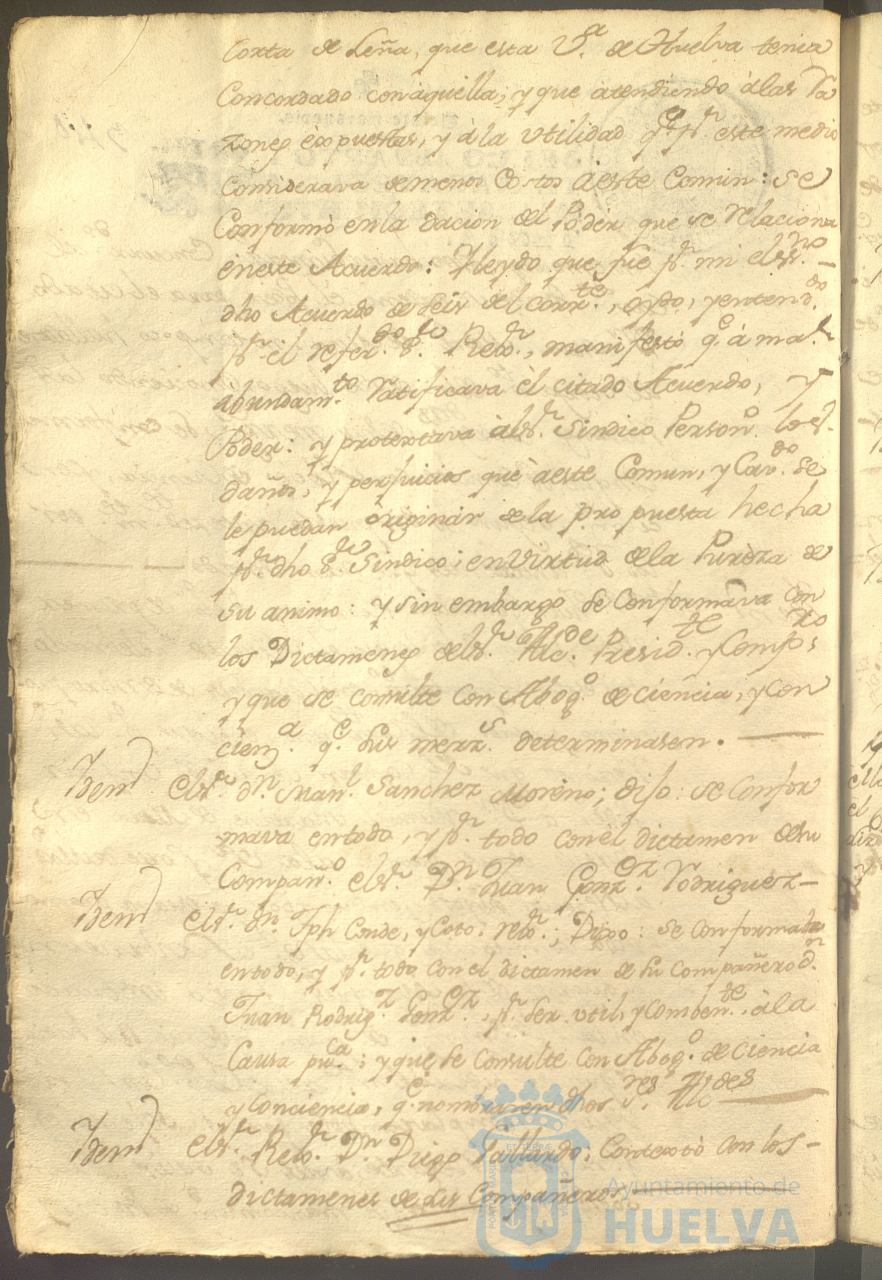 Corta de Leña, que esta Vª. de Huelva tenia
Concordado con àquella; y que atendiendo à las Ra
zones èxpuestas, y à la vtilidad qᵉ. pʳ. este medio
Considerava de menos Costos àeste Comun: se
Conformò en la dacion del Podèr que se relaciona
en este Acuerdo: Y leydo que fue pʳ. mi el essⁿᵒ.
dho Acuerdo de seis del corrᵗᵉ., oydo, y entendᵈᵒ.
pʳ. el referᵈᵒ. sʳ. Rexʳ., manifestó qᵉ. à maʳ.
abundamᵗᵒ. Ratificava èl citado Acuerdo, y
Podèr: y protextava àl sʳ. Sindico Personᵒ. los
daños, y perjuicios que àeste Comun, y Cavᵈᵒ. se
le puedan originar de la propuesta hecha
pʳ. dho sʳ. Sindico; en virtud de la Purèza de
su animo: y sin embargo se Conformava con
los Dictamenes del sʳ. Alcᵈᵉ. Presidᵗᵉ. y Compˢ
y que se consulte con Abogᵒ. de ciencia, y con
cienᵃ. qᵉ. sus merzˢ. determinasen.
Ydem el sʳ. dⁿ. Manˡ. Sanchez Moreno; dijo: se Confor
mava en todo, y pʳ. todo con èl dictamen de su
Compañᵒ. el sʳ. Dⁿ. Juan Gonzᶻ. Rodriguez
Ydem el sʳ. dⁿ. Jph Conde, y Coto: rexʳ.; Dixo: se conformava
en todo, y pʳ. todo con el dictamen de su compañero dⁿ.
Juan Rodrigᶻ. Gonzᶻ., pʳ. ser vtil, y combenᵗᵉ. à la
Causa puᶜᵃ.: y que se consulte con Abogᵒ. de ciencia
y conciencia, qᵉ. nombraren dhos sʳᵉˢ. Alcᵈᵉˢ
Ydem el sʳ. Rexʳ. Dⁿ. Diego Gallardo, Contextò con los
dictamenes de sus Compañeros
Ayuntamiento de
HUELVA